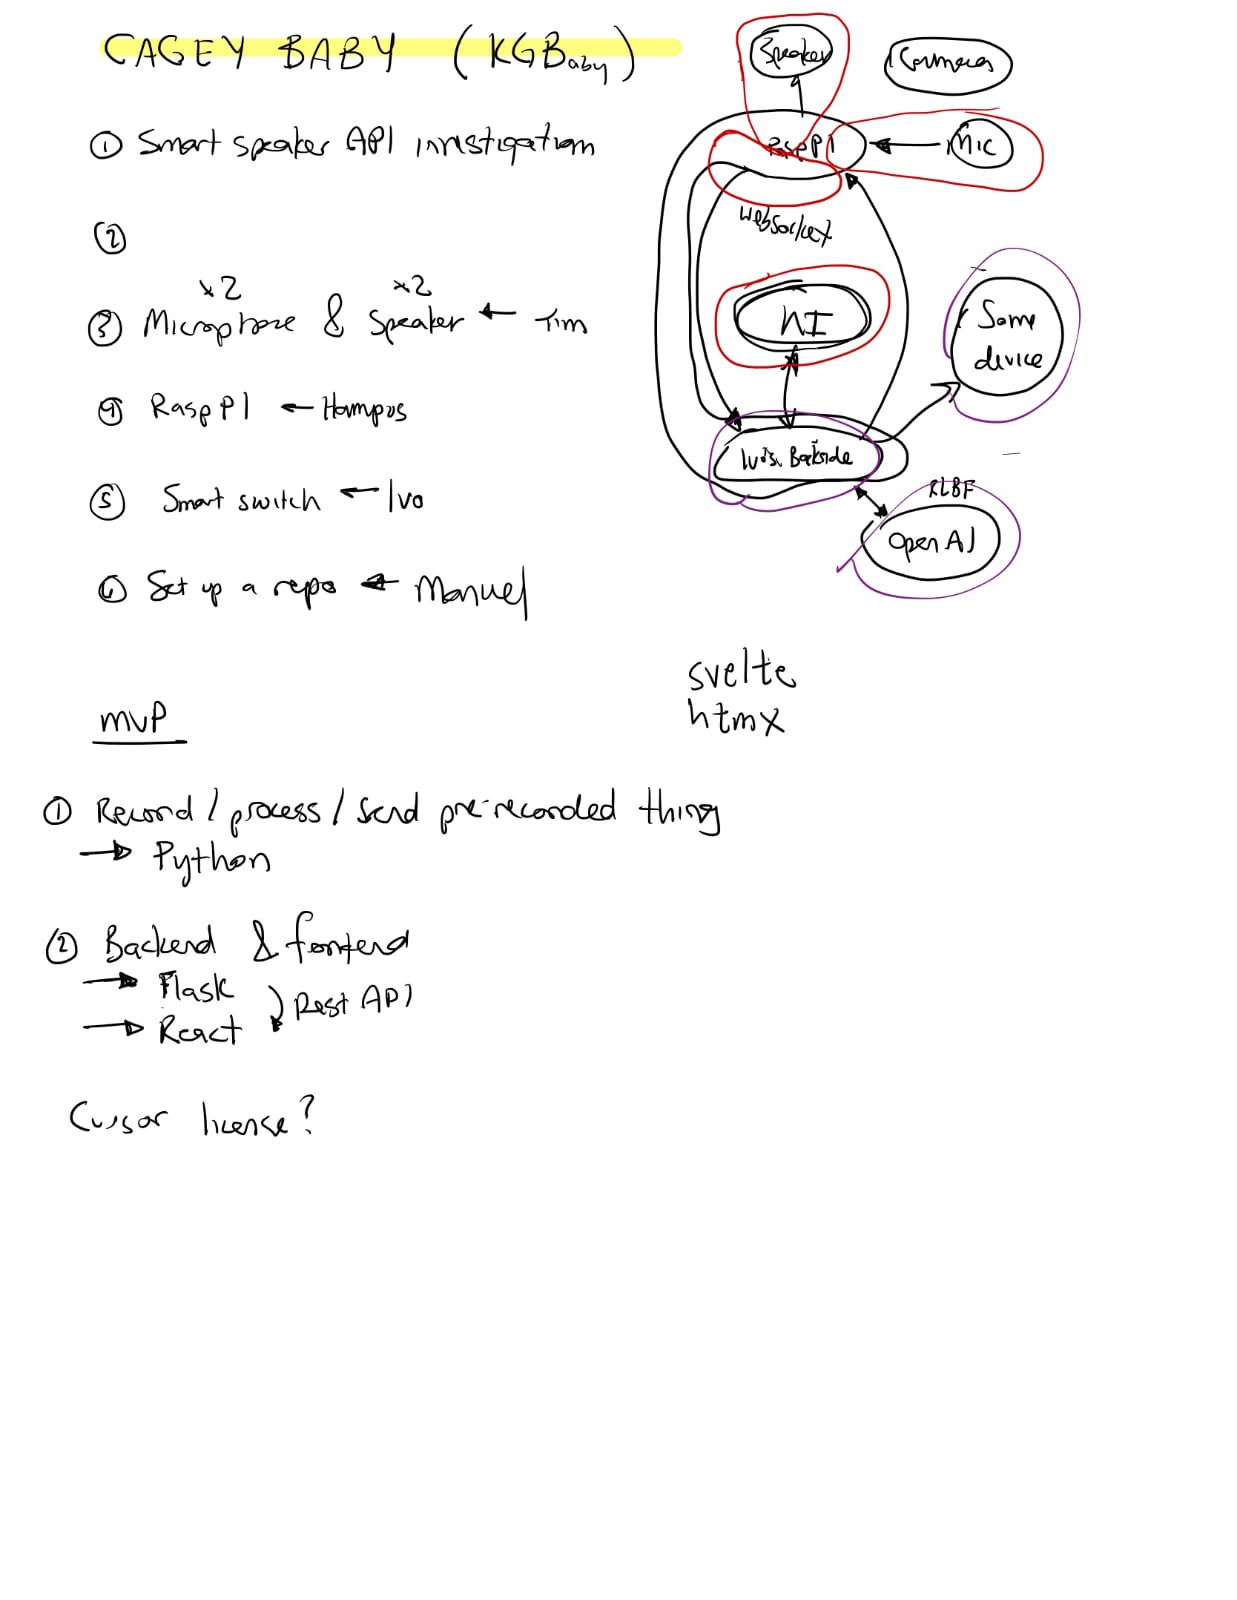 CAGEY BABY (KGBaby)
① Smart speaker API investigation
②
x2 x2
③ Microphone & Speaker ← Tim
④ RaspPI ← Hampus
⑤ Smart switch ← Ivo
⑥ Set up a repo ← Manuel
Speaker
Cameras
RaspPI
Mic
Websocket
Some
device
Backside
RLBF
Open AI
svelte
htmx
MVP
① Record / process / Send pre-recorded thing
→ Python
② Backend & frontend
→ Flask
→ React
} Rest API
Cursor license?